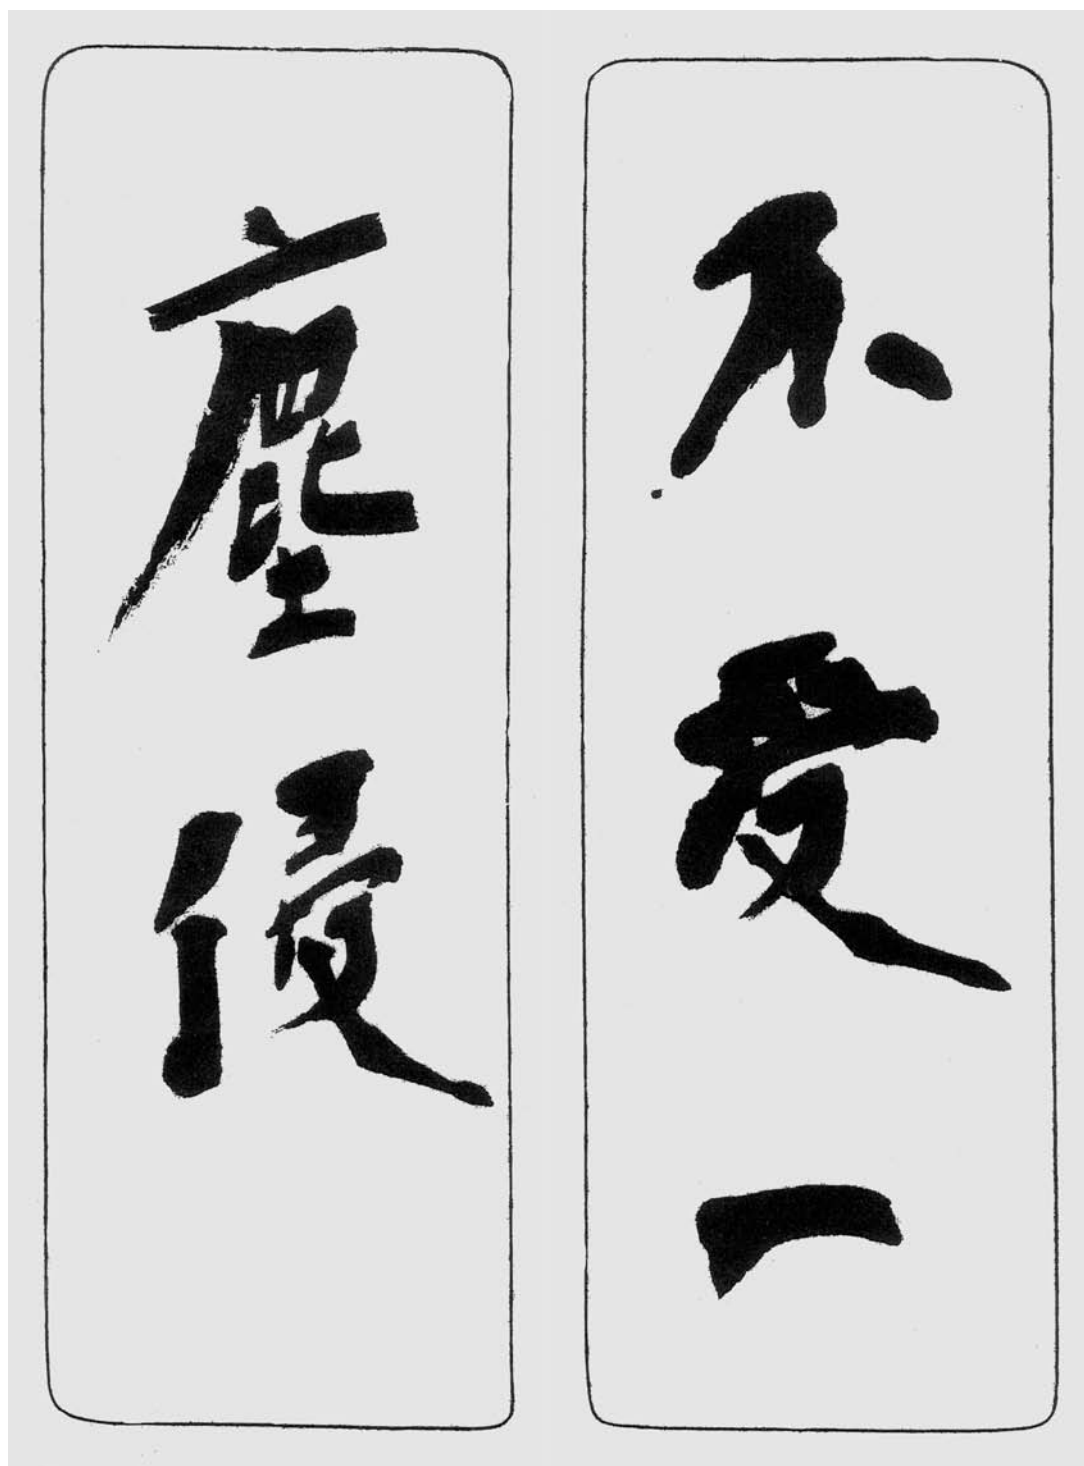 不受一
塵侵